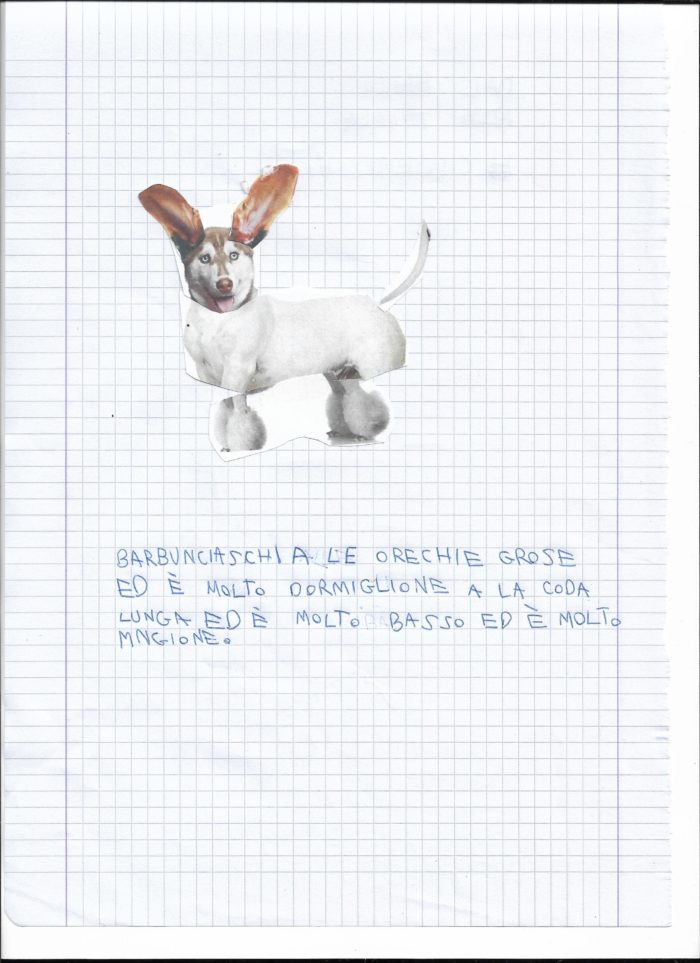 BARBUNCIASCHI A LE ORECHIE GROSE
ED È MOLTO DORMIGLIONE A LA CODA
LUNGA ED È MOLTO BASSO ED È MOLTO
MNGIONE.